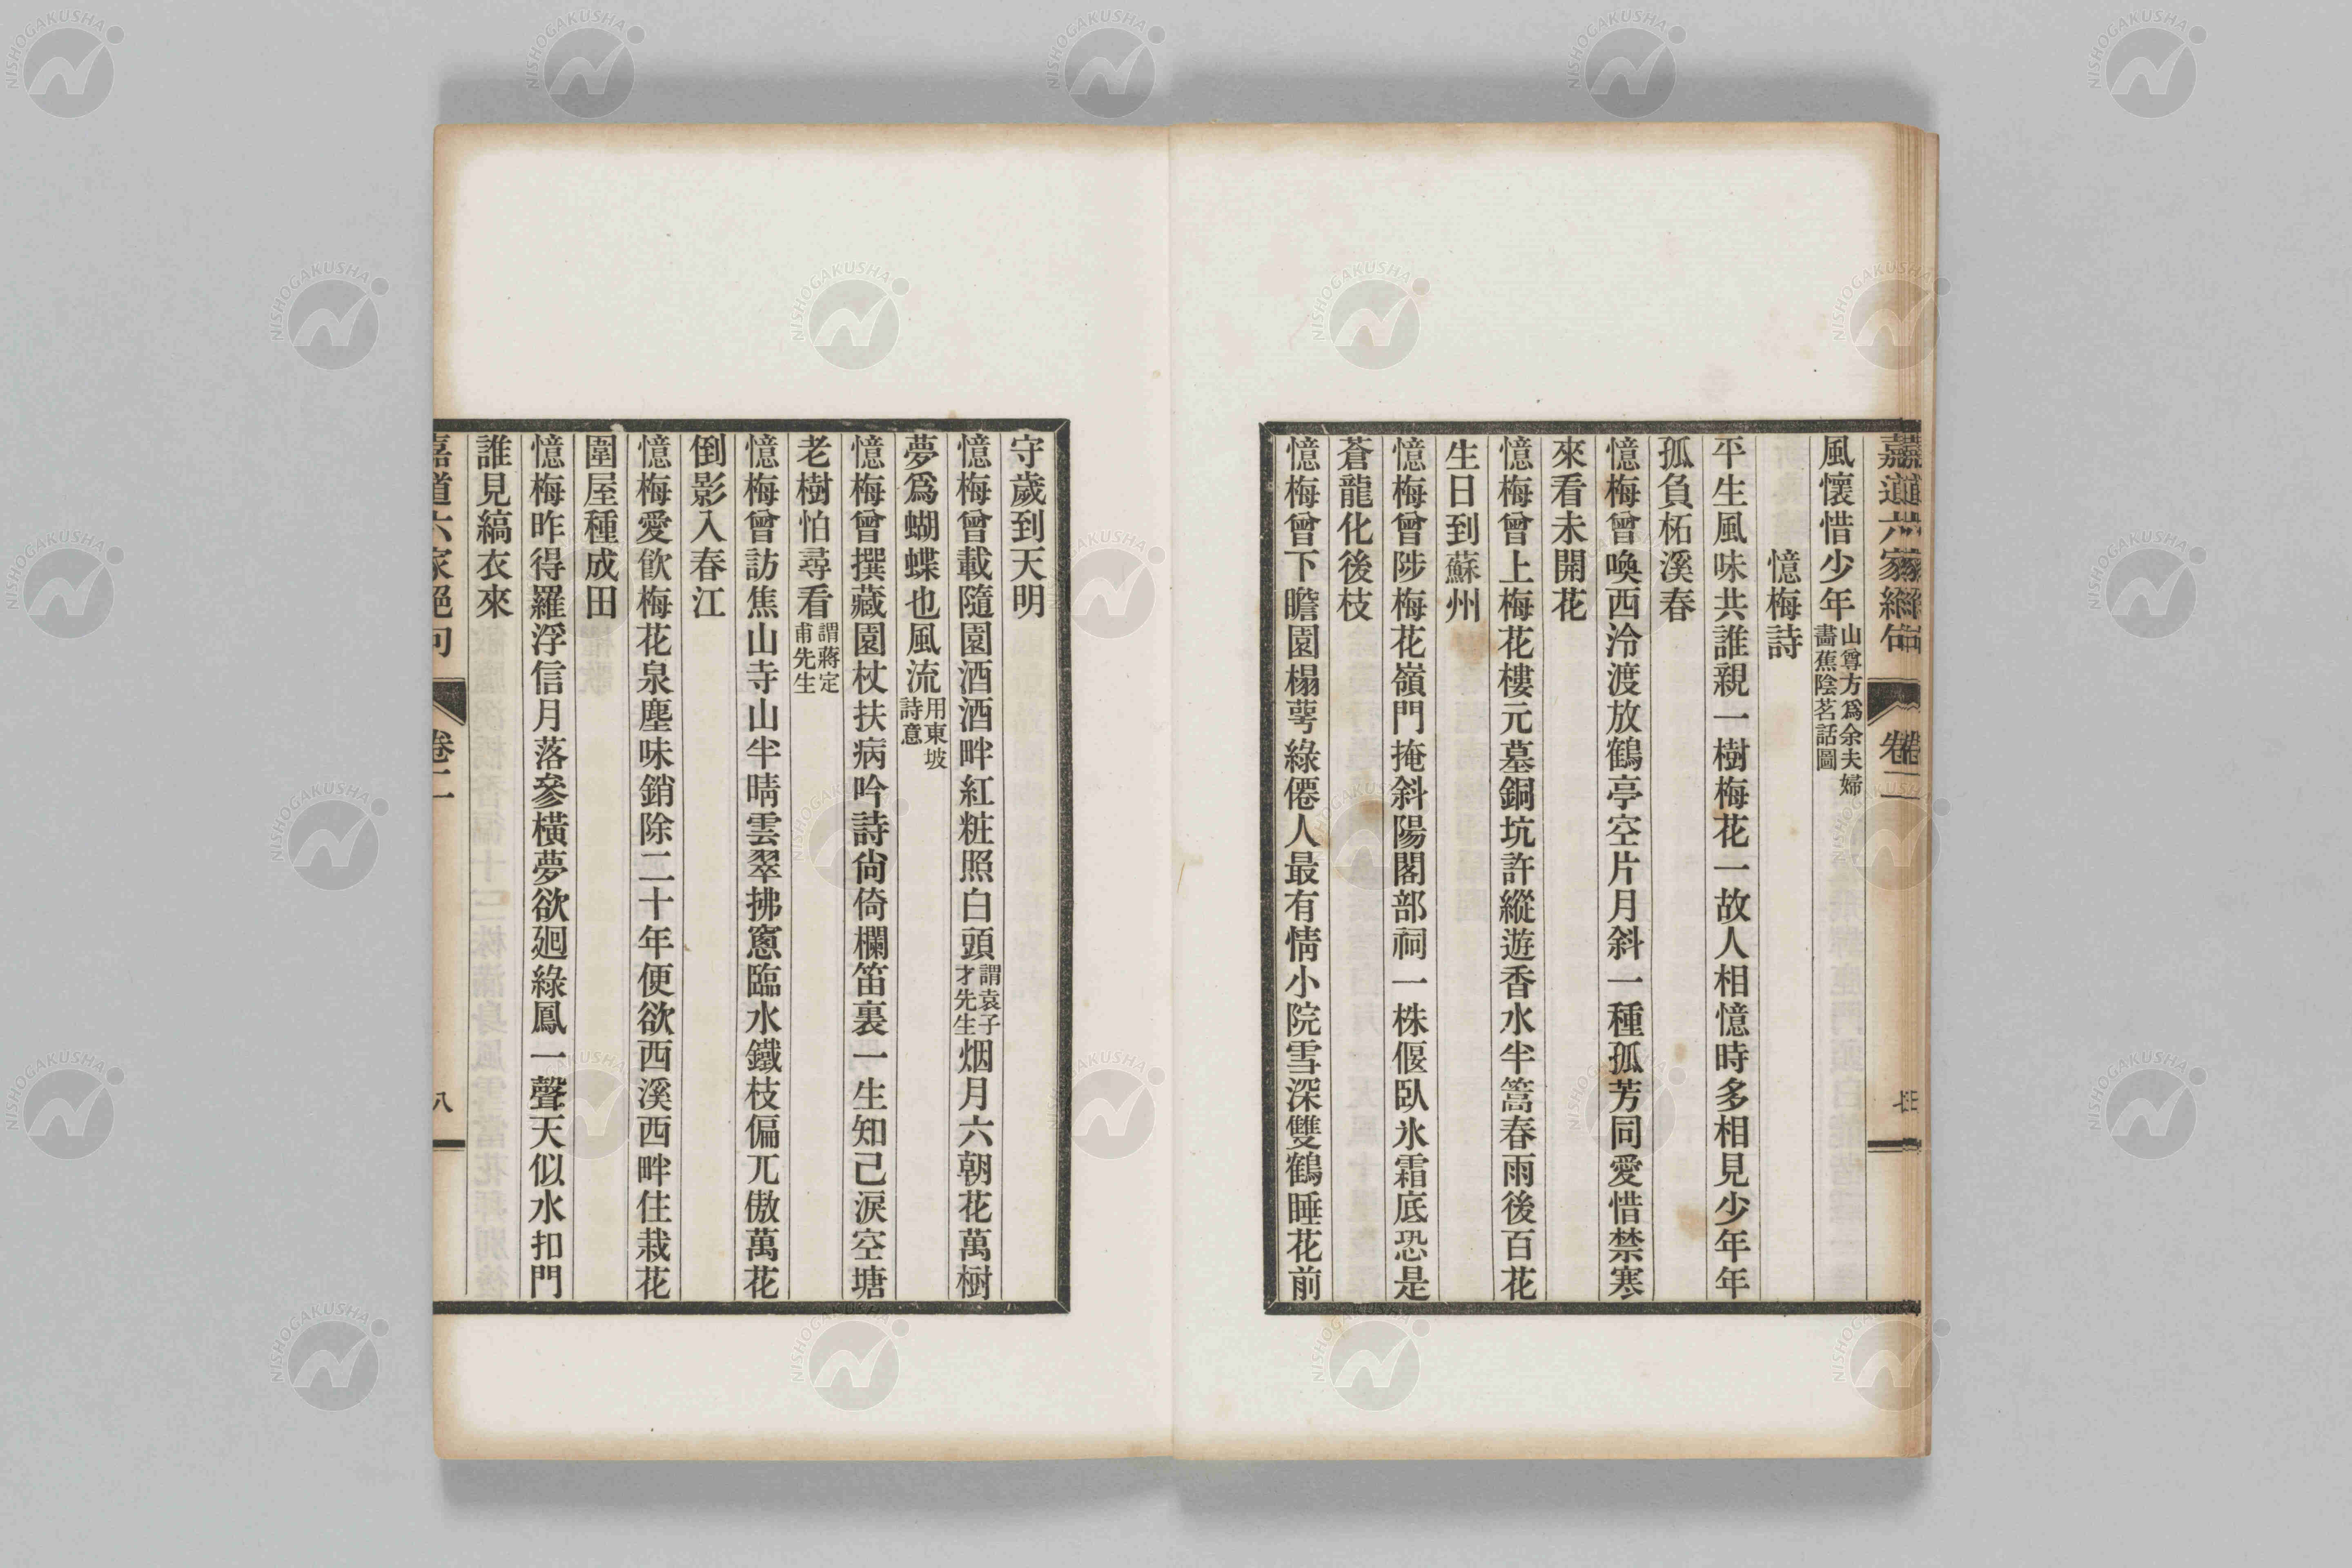 嘉道六家絕句
卷二
風懷惜少年山尊方為余夫婦畵蕉陰茗話圖
憶梅詩
平生風味共誰親一樹梅花一故人相憶時多相見少年年
孤負柘溪春
憶梅曾喚西泠渡放鶴亭空片月斜一種孤芳同愛惜禁寒
來看未開花
憶梅曾上梅花樓元墓銅坑許縱遊香水半篙春雨後百花
生日到蘇州
憶梅曾陟梅花嶺門掩斜陽閣部祠一株偃臥氷霜底恐是
蒼龍化後枝
憶梅曾下瞻園榻萼綠僊人最有情小院雪深雙鶴睡花前
守歲到天明
憶梅曾載隨園酒酒畔紅粧照白頭謂袁子才先生烟月六朝花萬樹
夢爲蝴蝶也風流用東坡詩意
憶梅曾撰藏園杖扶病吟詩尙倚欄笛裏一生知己淚空塘
老樹怕尋看謂蔣定甫先生
憶梅曾訪焦山寺山半晴雲翠拂窻臨水鐵枝偏兀傲萬花
倒影入春江
憶梅愛飮梅花泉塵味銷除二十年便欲西溪西畔住栽花
圍屋種成田
憶梅昨得羅浮信月落參橫夢欲廻綠鳳一聲天似水扣門
誰見縞衣來
嘉道六家絕句
卷二
八
NISHOGAKUSHA